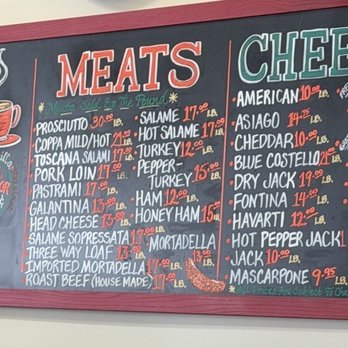 MEATS
*Meats Sold By The Pound*
PROSCIUTTO 30.00 LB.
COPPA MILD/HOT 21.00 LB.
TOSCANA SALAMI 17.00 LB.
PORK LOIN 17.00 LB.
PASTRAMI 17.00 LB.
GALANTINA 13.00 LB.
HEAD CHEESE 13.00 LB.
SALAME SOPRESSATA 17.00 LB.
THREE WAY LOAF 13.00 LB.
IMPORTED MORTADELLA 17.00 LB.
ROAST BEEF (HOUSE MADE) 17.00 LB.
SALAME 17.00 LB.
HOT SALAME 17.00 LB.
TURKEY 12.00 LB.
PEPPER-
TURKEY 13.00 LB.
HAM 12.00 LB.
HONEY HAM 15.00 LB.
MORTADELLA
13.00 LB.
CHEE
AMERICAN 10.00 LB.
ASIAGO 14.75 LB.
CHEDDAR 10.00 LB.
BLUE COSTELLO 21.00 LB.
DRY JACK 19.00 LB.
FONTINA 14.00 LB.
HAVARTI 12.00 LB.
HOT PEPPER JACK 1
JACK 10.00 LB.
MASCARPONE 9.95 LB.
*All Prices Are Subject To Ch